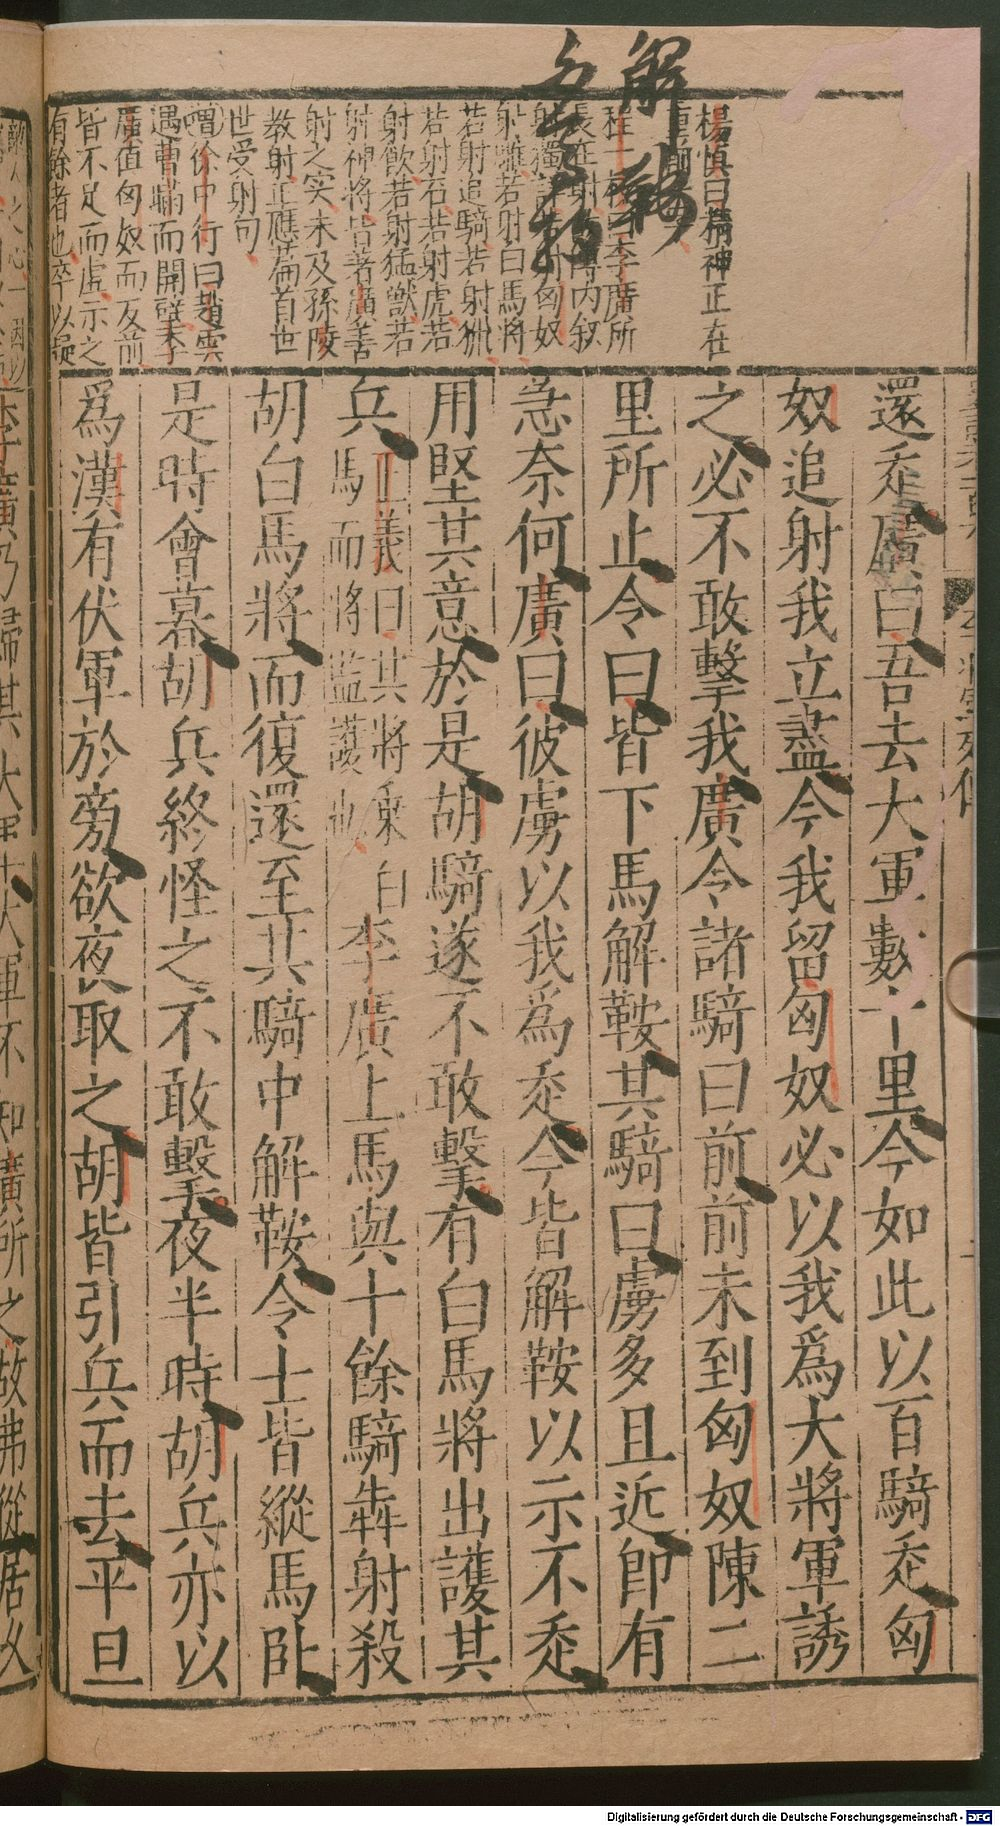 解鞍
楊慎曰精神正在
程一枝曰李廣所
長在射故傳內敘
射獨詳若射匈奴
射鵰若射白馬將
若射追騎若射獵
若射石若射虎若
射飲若射猛獸若
射裨將皆著廣善
射之实末及孫陵
教射正應篇首世
世受射句
唶徐中行曰趙雲
遇曹瞞而開壁李
廣值匈奴而反前
皆不足而虛示之
有餘者也卒以疑
還走廣曰吾去大軍數十里今如此以百騎走匈
奴追射我立盡今我留匈奴必以我爲大將軍誘
之必不敢擊我廣令諸騎曰前前未到匈奴陳二
里所止令曰皆下馬解鞍其騎曰虜多且近卽有
急奈何廣曰彼虜以我爲走今皆解鞍以示不走
用堅其意於是胡騎遂不敢擊有白馬將出護其
兵正義曰其將乗白馬而將監護也李廣上馬與十餘騎犇射殺
胡白馬將而復還至其騎中解鞍令士皆縱馬臥
是時會暮胡兵終怪之不敢擊夜半時胡兵亦以
爲漢有伏軍於旁欲夜取之胡皆引兵而去平旦
李廣乃歸其大軍大軍不知廣所之故弗從居久
Digitalisierung gefördert durch die Deutsche Forschungsgemeinschaft - DFG